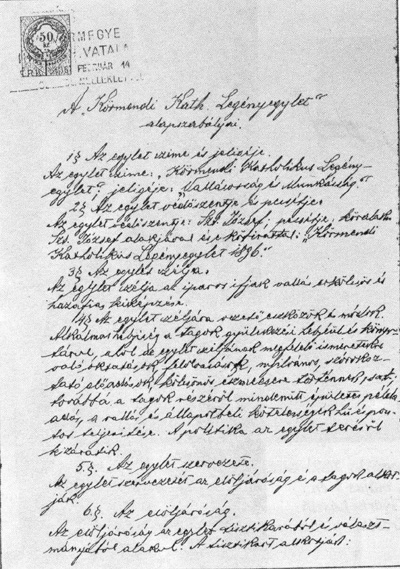 50
RMEGYE
VATALA
FEBRUÁR 14
MELLÉKLET
A "Körmendi Kath. Legényegylet"
alapszabályai.
1§ Az egylet czime és jeligéje.
Az egylet czime: "Körmendi Katholikus Legény-
egylet", jeligéje: "Vallásosság és Munkásság."
2§ Az egylet védőszentje és pecsétje.
Az egylet védőszentje: Szt. József; pecsétje: köralakú
Szt. József alakjával és e körirattal: "Körmendi
Katholikus Legényegylet 1896."
3§ Az egylet czélja.
Az egylet czélja az iparos ifjak vallás erkölcsös és
hazafias kiképzése.
4§ Az egylet czéljára vezető eszközök és módok.
Alkalmas helyiség a tagok gyülekezési helyéül és könyv-
tárul, ahol az egylet czéljának megfelelő ismeretekre
való oktatások, felolvasások, nyilvános, szórakoz-
tató előadások, kölcsönös eszmecsere történnek,
továbbá a tagok részéről mindennemű épületes példa-
adás, a vallás és állampolgári kötelességek hű és pon-
tos teljesitése. A politika az egylet teréről
kizáratik.
5.§. Az egylet szervezete.
Az egylet szervezetét az elöljáróság és a tagok alkot-
ják.
6.§. Az elöljáróság.
Az elöljáróság az egylet tisztikarából és választ-
mányából alakul. A tisztikart alkotják: